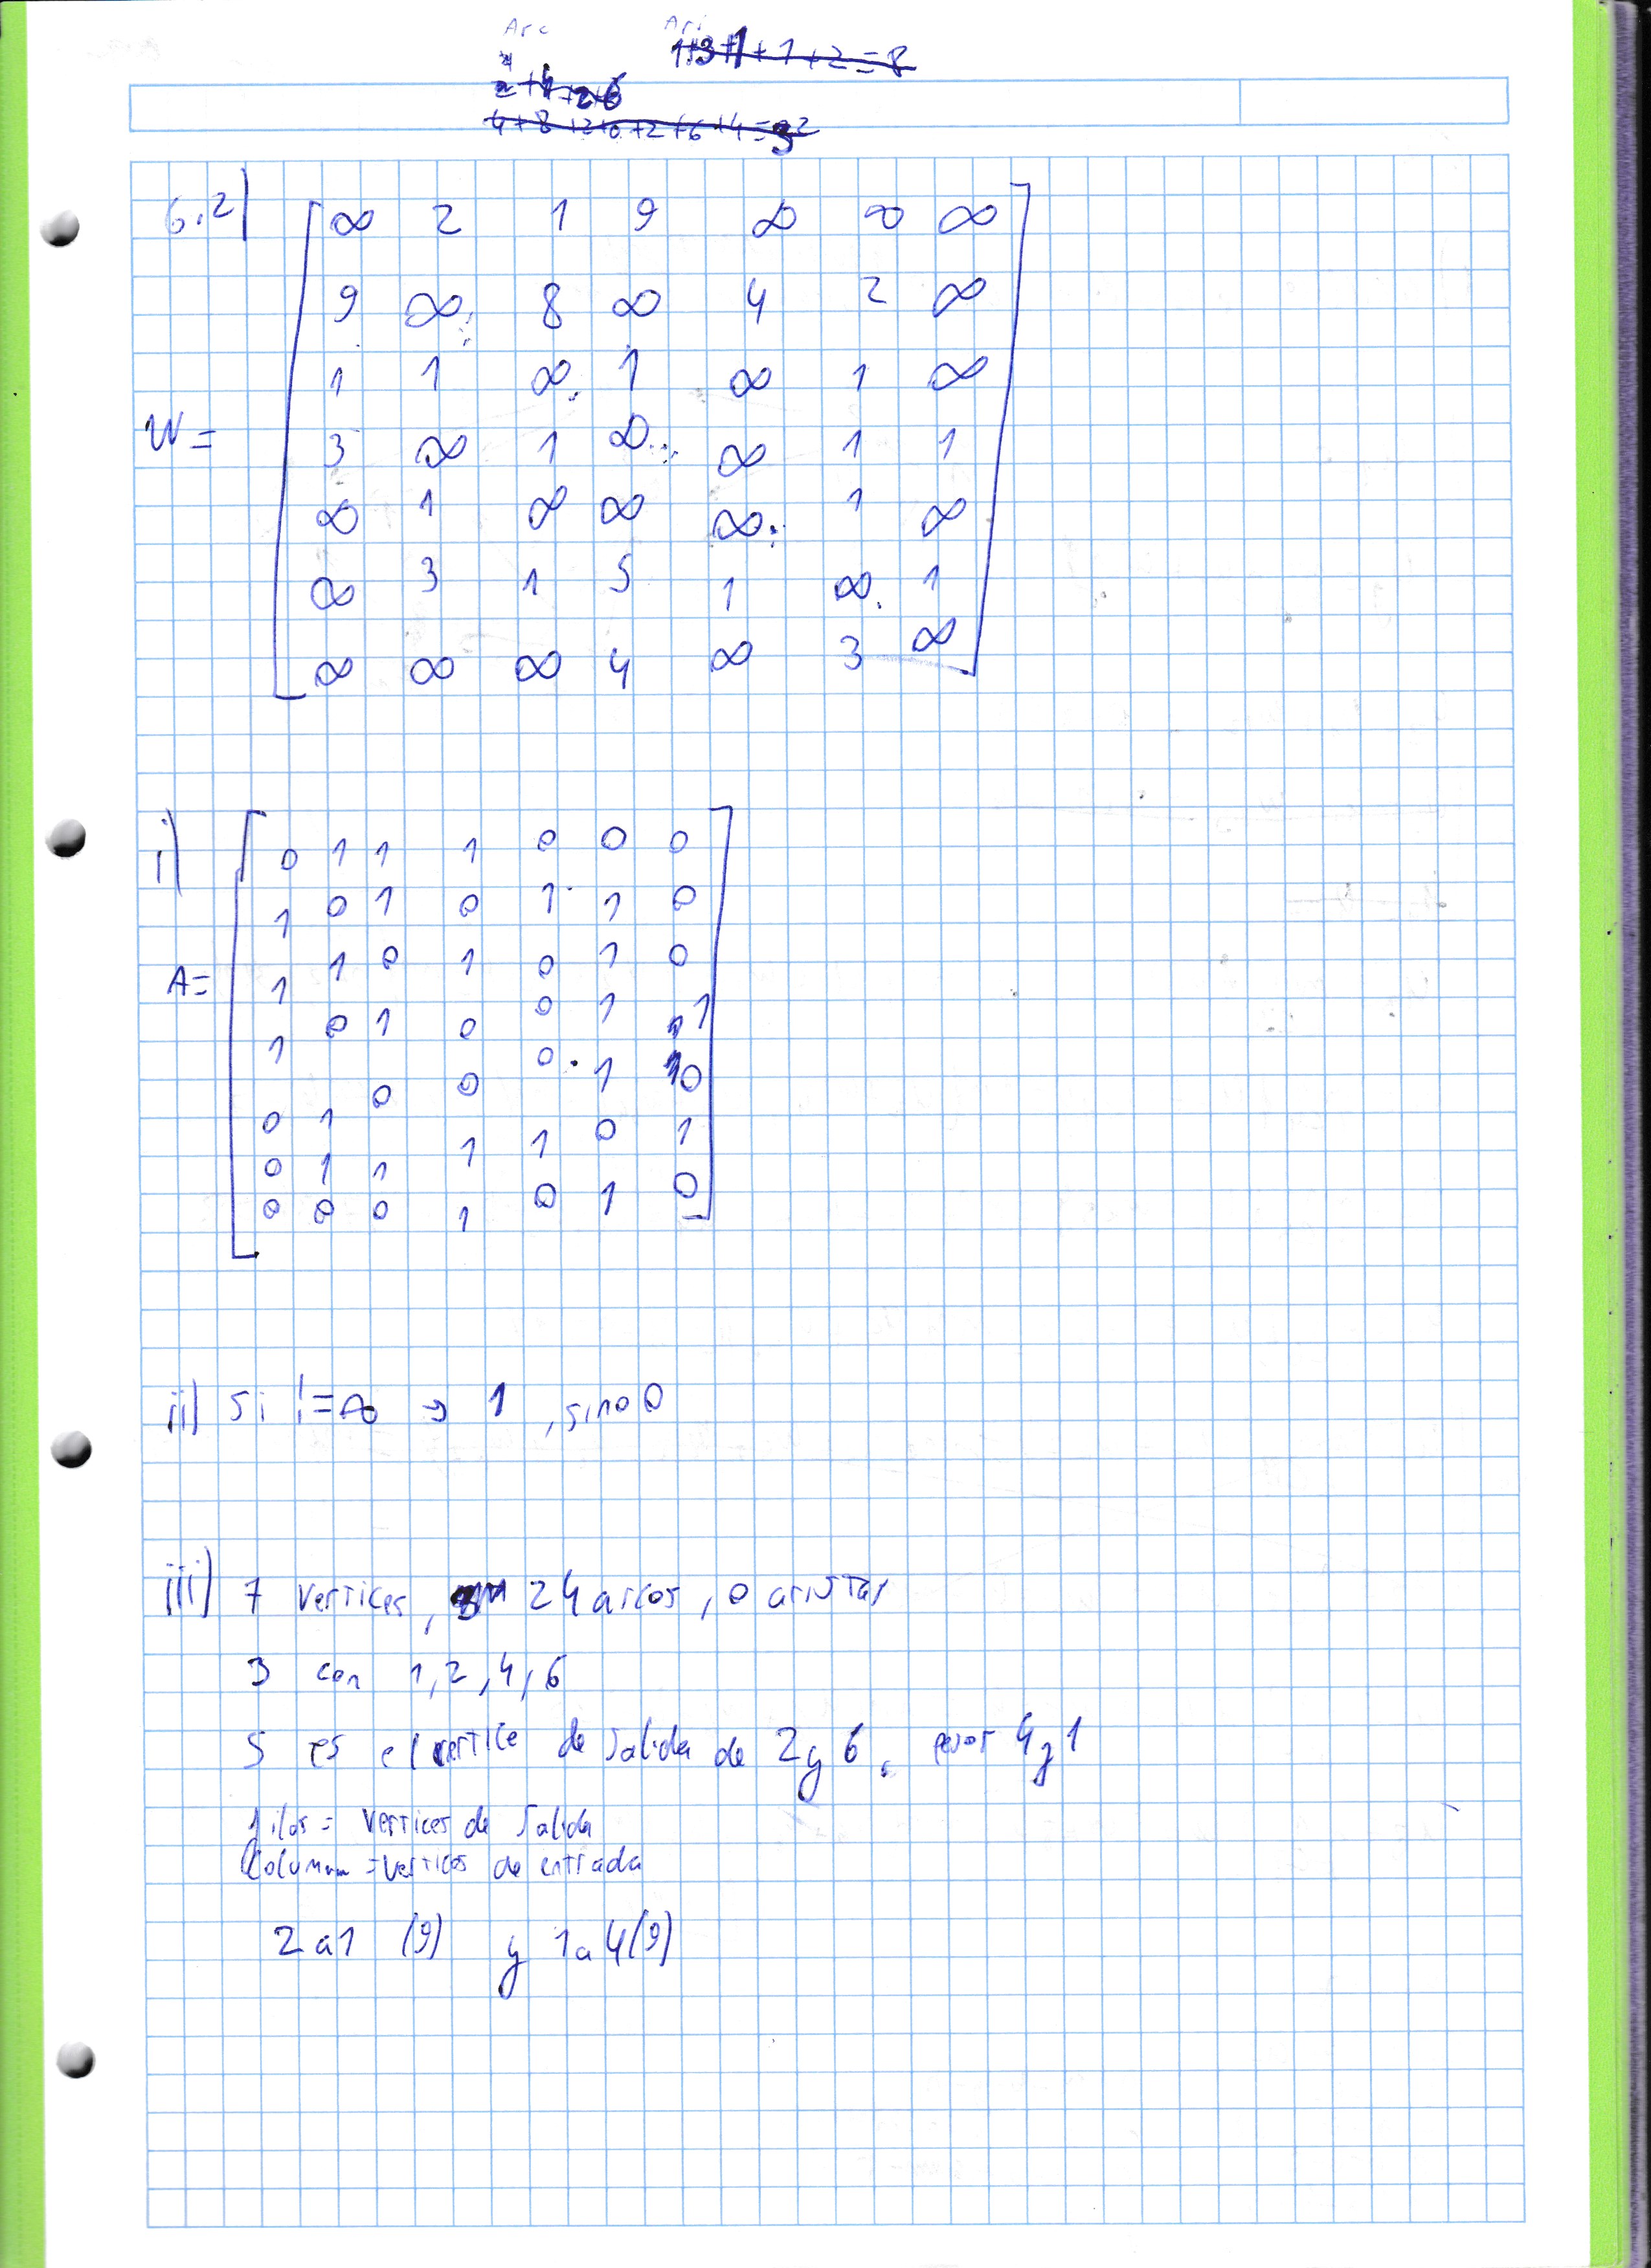 Arc Ari
1+3+1+1+2=8
4+8+2+0+2+6+4=32
6.2)
W =
∞ 2 1 9 ∞ ∞ ∞
9 ∞ 8 ∞ 4 2 ∞
1 1 ∞ 1 ∞ 1 ∞
3 ∞ 1 ∞ ∞ 1 1
∞ 1 ∞ ∞ ∞ 1 ∞
∞ 3 1 5 1 ∞ 1
∞ ∞ ∞ 4 ∞ 3 ∞
i)
A =
0 1 1 1 0 0 0
1 0 1 0 1 1 0
1 1 0 1 0 1 0
1 0 1 0 0 1 1
0 1 0 0 0 1 0
0 1 1 1 1 0 1
0 0 0 1 0 1 0
ii) Si != ∞ → 1, sino 0
iii) 7 vertices, 24 arcos, 0 aristas
3 con 1, 2, 4, 6
5 es el vertice de salida de 2 y 6, pesos 4 y 1
filas = vertices de salida
Columnas = vertices de entrada
2 a 1 (9) y 1 a 4 (9)